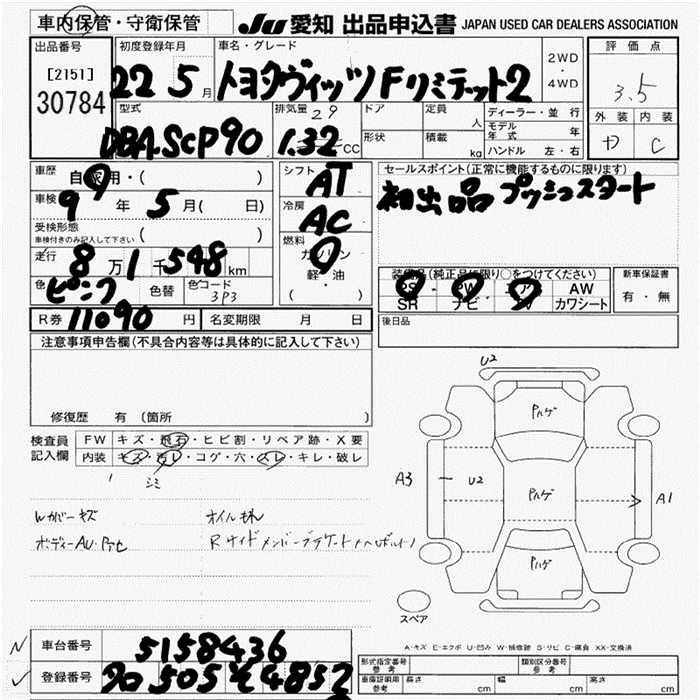 車内保管・守衛保管
JU 愛知 出品申込書 JAPAN USED CAR DEALERS ASSOCIATION
出品番号
[2151]
30784
初度登録年月
22 5月
車名・グレード
トヨタヴィッツFリミテッド2
2WD
・
4WD
評価点
3.5
外装 内装
C
型式
DBA.SCP90
排気量 29
1.32 CC
ドア
形状
定員
人
積載
kg
ディーラー・並行
モデル年式 年
ハンドル 左・右
車歴
自家用・( )
車検
9年 5月( 日)
受検形態
車検付きのみ記入して下さい ( )
走行
8万1千548km
色
ピンク
色替
色コード
3P3
シフト
AT
冷房
AC
燃料
ガソリン
軽・油
( )
セールスポイント(正常に機能するものに限ります)
初出品 プッシュスタート
装備品(純正品に限り○をつけてください)
PS PW エアB AW
SR ナビ TV カワシート
新車保証書
有・無
後日品
R券 11090円
名変期限 月 日
注意事項申告欄(不具合内容等は具体的に記入して下さい)
修復歴 有 (箇所 )
検査員
記入欄
FW キズ・飛石・ヒビ割・リペア跡・X要
内装 キズ・汚レ・コゲ・穴・スレ・キレ・破レ
シミ
Wカバーキズ
オイルもれ
U2
Pハゲ
A3
U2
Pハゲ
A1
Pハゲ
スペア
A-キズ E-エクボ U-凹み W-補修跡 S-サビ C-腐食 XX-交換済
車台番号
5158436
登録番号
505そ4852
形式指定番号
参考
類別区分番号
参考
車庫証明用
参考
長さ cm
幅 cm
高さ cm